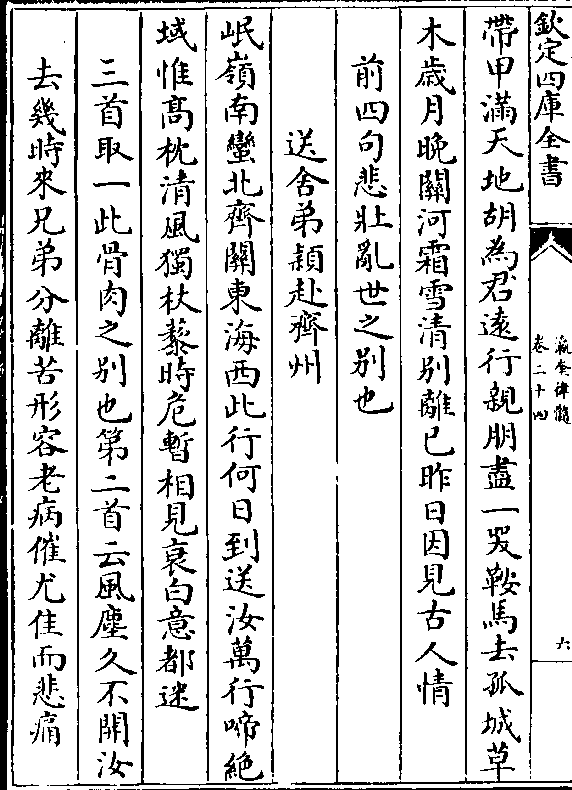 欽定四庫全書
瀛奎律髓
卷二十四
六
帶甲滿天地胡為君遠行親朋盡一哭鞍馬去孤城草
木歲月晚關河霜雪清別離已昨日因見古人情
前四句悲壯亂世之別也
送舍弟穎赴齊州
岷嶺南蠻北齊關東海西此行何日到送汝萬行啼絶
域惟髙枕清風獨杖藜時危暫相見衰白意都迷
三首取一此骨肉之別也第二首云風塵久不開汝
去幾時來兄弟分離苦形容老病催尤佳而悲痛